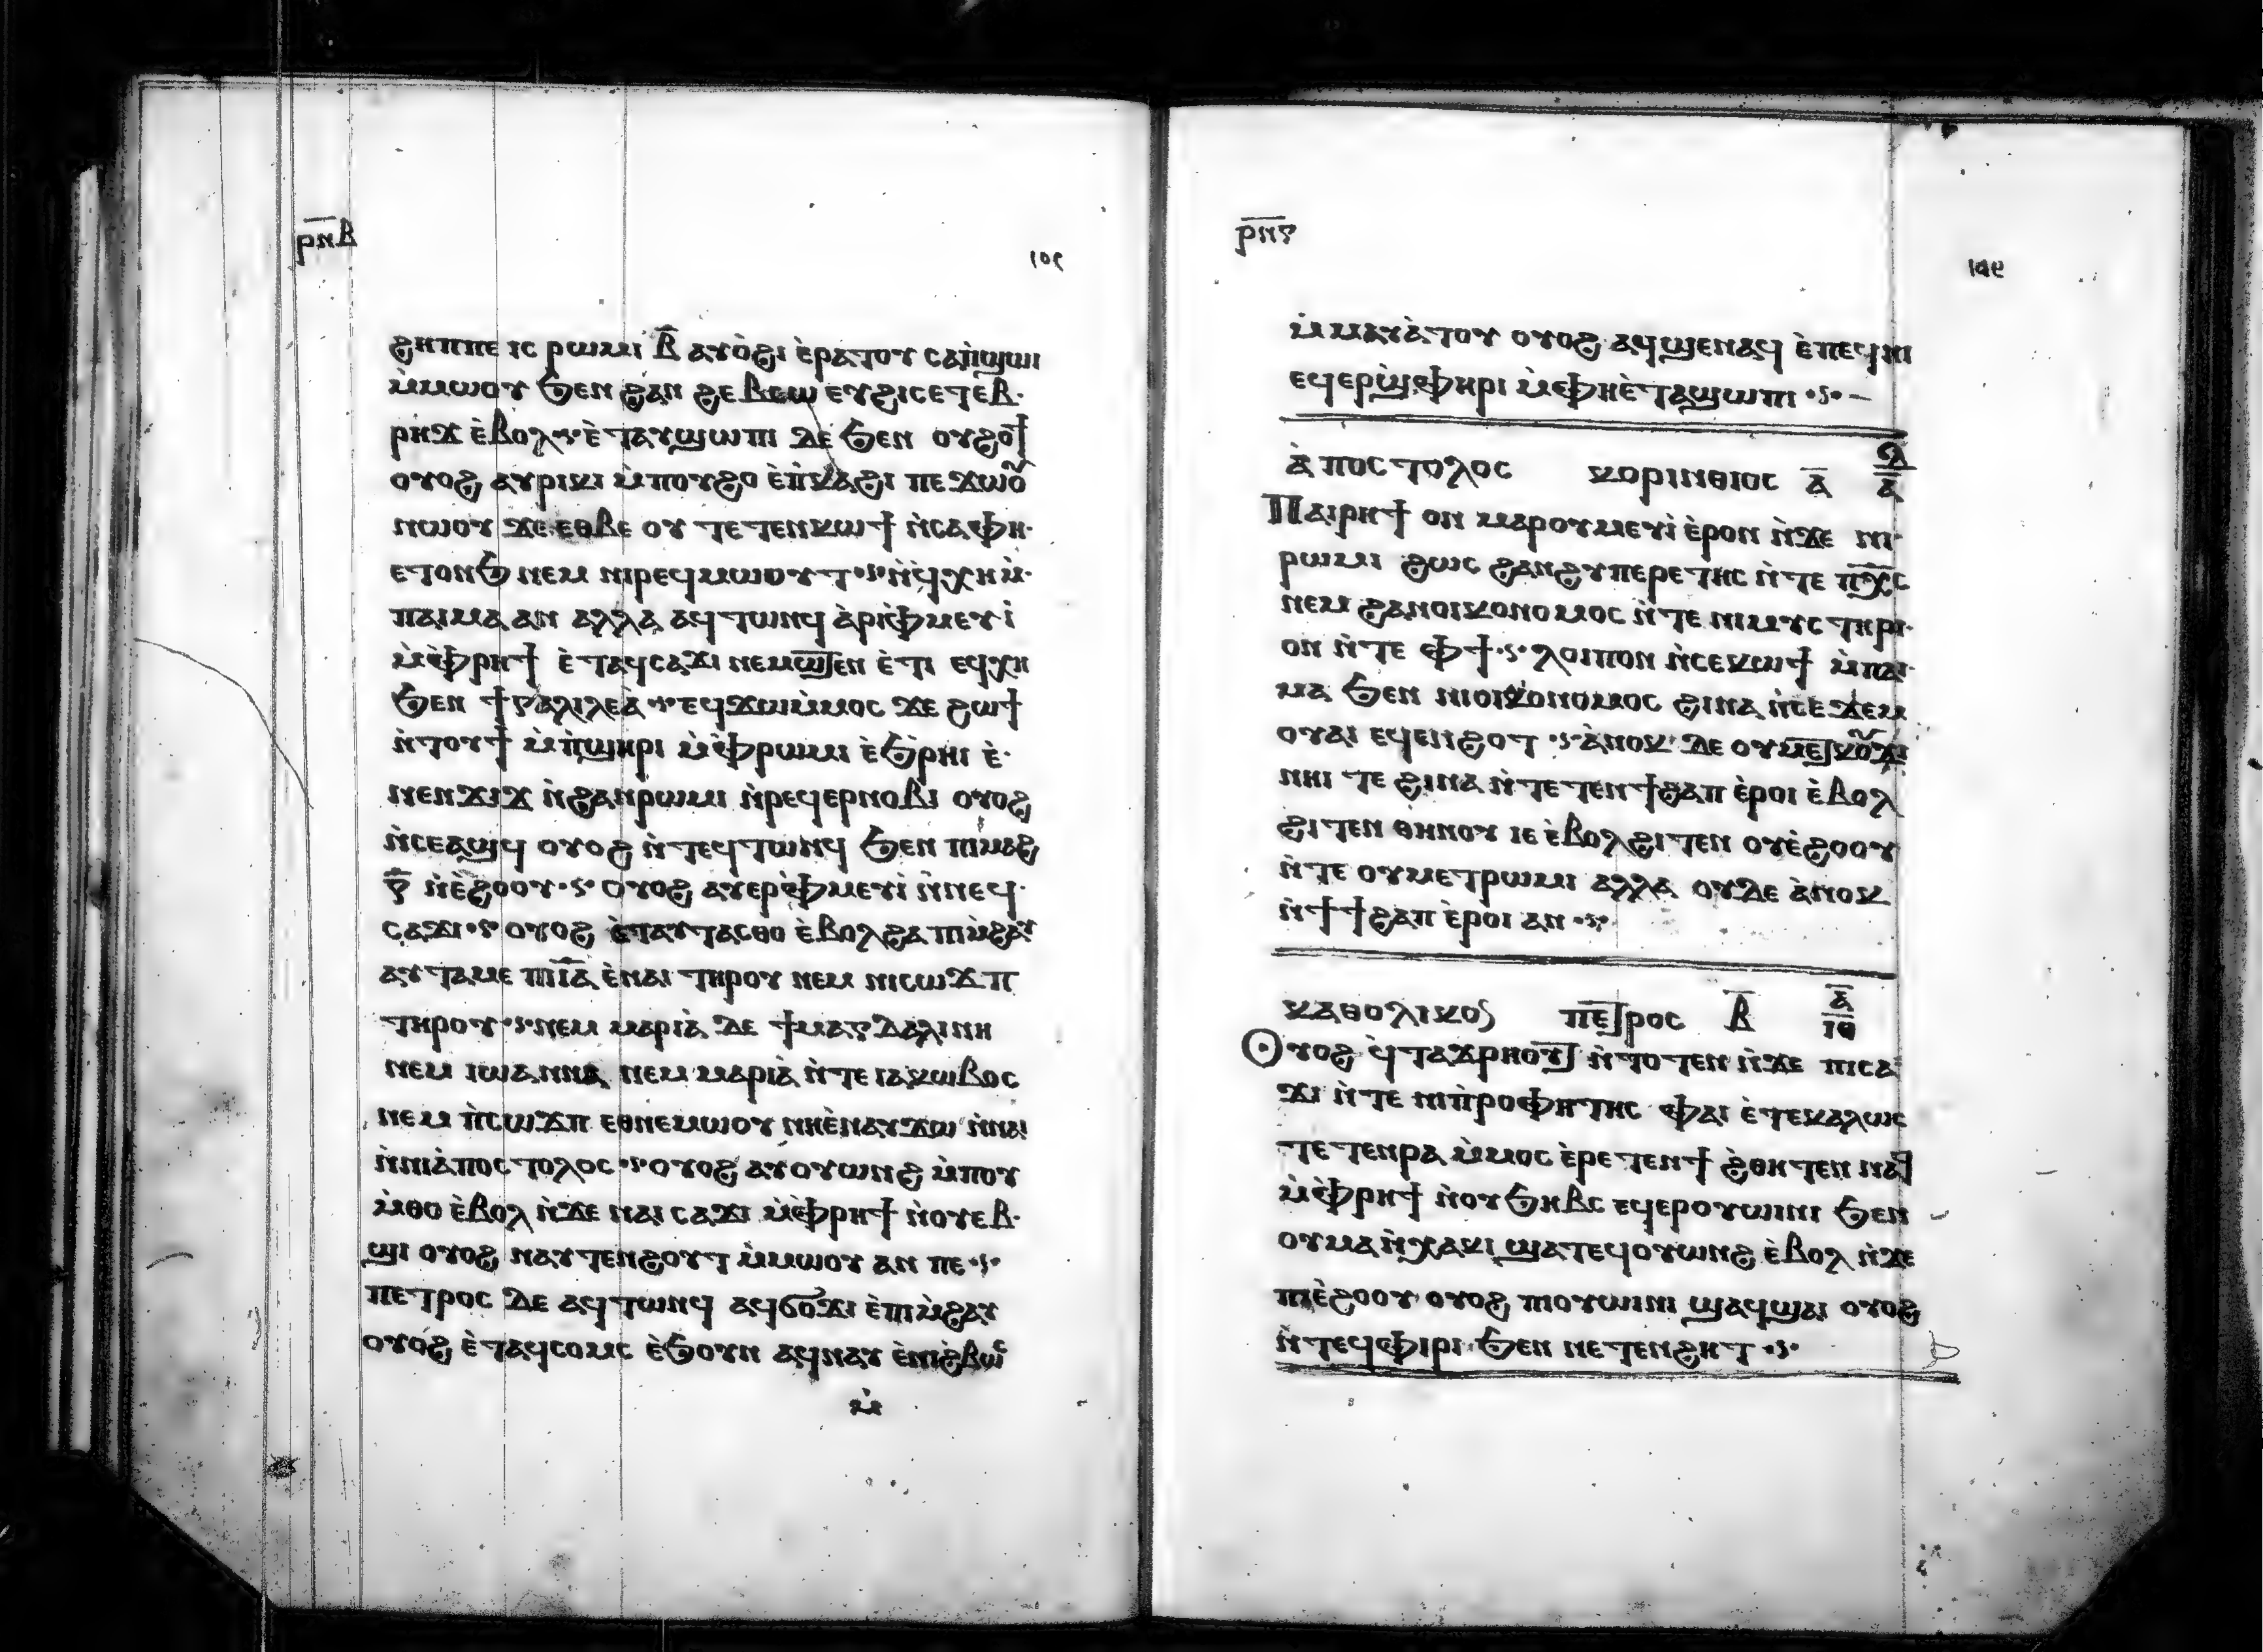 ⲣ̅ⲛ̅ⲃ̅
ϩⲏⲡⲡⲉ ⲓⲥ ⲣⲱⲙⲓ ⲃ̅ ⲁⲩⲟ̀ϩⲓ ⲉ̀ⲣⲁⲧⲟⲩ ⲥⲁⲡ̀ϣⲱⲓ
ⲙ̀ⲙⲱⲟⲩ ϧⲉⲛ ϩⲁⲛ ϩⲉⲃⲥⲱ ⲉⲩϩⲓⲥⲉⲧⲉⲃ
ⲣⲏϫ ⲉ̀ⲃⲟⲗ ⲉ̀ⲧⲁⲩϣⲱⲡⲓ ⲇⲉ ϧⲉⲛ ⲟⲩϩⲟϯ
ⲟⲩⲟϩ ⲁⲩⲣⲓⲕⲓ ⲙ̀ⲡⲟⲩϩⲟ ⲉ̀ⲡ̀ⲕⲁϩⲓ ⲡⲉϫⲱⲟⲩ
ⲛⲱⲟⲩ ϫⲉ ⲉⲑⲃⲉ ⲟⲩ ⲧⲉⲧⲉⲛⲕⲱϯ ⲛ̀ⲥⲁ ⲫⲏ
ⲉⲧⲟⲛϧ ⲛⲉⲙ ⲛⲓⲣⲉϥⲙⲱⲟⲩⲧ ⲛ̀ϥ̀ⲭⲏ ⲙ̀
ⲡⲁⲓⲙⲁ ⲁⲛ ⲁⲗⲗⲁ ⲁϥⲧⲱⲛϥ ⲁ̀ⲣⲓⲫ̀ⲙⲉⲩⲓ̀
ⲙ̀ⲫ̀ⲣⲏϯ ⲉ̀ⲧⲁϥⲥⲁϫⲓ ⲛⲉⲙⲱⲧⲉⲛ ⲉ̀ⲧⲓ ⲉϥⲭⲏ
ϧⲉⲛ ϯⲅⲁⲗⲓⲗⲉⲁ̀ ⲉϥϫⲱⲙ̀ⲙⲟⲥ ϫⲉ ϩⲱϯ
ⲛ̀ⲧⲟⲩϯ ⲙ̀ⲡ̀ϣⲏⲣⲓ ⲙ̀ⲫ̀ⲣⲱⲙⲓ ⲉ̀ϧ̀ⲣⲏⲓ ⲉ̀
ⲛⲉⲛϫⲓϫ ⲛ̀ϩⲁⲛⲣⲱⲙⲓ ⲛ̀ⲣⲉϥⲉⲣⲛⲟⲃⲓ ⲟⲩⲟϩ
ⲛ̀ⲥⲉⲁϣϥ ⲟⲩⲟϩ ⲛ̀ⲧⲉϥⲧⲱⲛϥ ϧⲉⲛ ⲡⲓⲙⲁϩ
ⲅ̅ ⲛ̀ⲉ̀ϩⲟⲟⲩ ⲟⲩⲟϩ ⲁⲩⲉⲣⲫ̀ⲙⲉⲩⲓ̀ ⲛ̀ⲛⲉϥ
ⲥⲁϫⲓ ⲟⲩⲟϩ ⲉ̀ⲧⲁⲩⲧⲁⲥⲑⲟ ⲉ̀ⲃⲟⲗϩⲁ ⲡⲓⲙ̀ϩⲁⲩ
ⲁⲩⲧⲁⲙⲉ ⲡⲓⲓ̅ⲁ̅ ⲉ̀ⲛⲁⲓ ⲧⲏⲣⲟⲩ ⲛⲉⲙ ⲛⲓⲥⲱϫⲡ
ⲧⲏⲣⲟⲩ ⲛⲉⲙ ⲙⲁⲣⲓⲁ̀ ⲇⲉ ϯⲙⲁⲅⲇⲁⲗⲓⲛⲏ
ⲛⲉⲙ ⲓⲱⲁⲛⲛⲁ ⲛⲉⲙ ⲙⲁⲣⲓⲁ̀ ⲛ̀ⲧⲉ ⲓⲁⲕⲱⲃⲟⲥ
ⲛⲉⲙ ⲡ̀ⲥⲱϫⲡ ⲉⲑⲛⲉⲙⲱⲟⲩ ⲛⲏⲉ̀ⲛⲁⲩϫⲱ ⲛ̀ⲛⲁⲓ
ⲛ̀ⲛⲓⲁ̀ⲡⲟⲥⲧⲟⲗⲟⲥ ⲟⲩⲟϩ ⲁⲩⲟⲩⲱⲛϩ ⲙ̀ⲡⲟⲩ
ⲙ̀ⲑⲟ ⲉ̀ⲃⲟⲗ ⲛ̀ϫⲉ ⲛⲁⲓ ⲥⲁϫⲓ ⲙ̀ⲫ̀ⲣⲏϯ ⲛ̀ⲟⲩⲉⲃ
ϣⲓ ⲟⲩⲟϩ ⲛⲁⲩⲧⲉⲛϩⲟⲩⲧ ⲙ̀ⲙⲱⲟⲩ ⲁⲛ ⲡⲉ
ⲡⲉⲧⲣⲟⲥ ⲇⲉ ⲁϥⲧⲱⲛϥ ⲁϥϭⲟϫⲓ ⲉ̀ⲡⲓⲙ̀ϩⲁⲩ
ⲟⲩⲟϩ ⲉ̀ⲧⲁϥⲥⲟⲙⲥ ⲉ̀ϧⲟⲩⲛ ⲁϥⲛⲁⲩ ⲉ̀ⲛⲓϩⲃⲱⲥ
ⲙ̀
ⲙ̀ⲙⲁⲩⲁ̀ⲧⲟⲩ ⲟⲩⲟϩ ⲁϥϣⲉⲛⲁϥ ⲉ̀ⲡⲉϥⲏⲓ
ⲉϥⲉⲣϣ̀ⲫⲏⲣⲓ ⲙ̀ⲫⲏⲉ̀ⲧⲁϣⲱⲡⲓ
ⲁ̀ⲡⲟⲥⲧⲟⲗⲟⲥ ⲕⲟⲣⲓⲛⲑⲓⲟⲥ ⲁ̅
ⲡⲁⲓⲣⲏϯ ⲟⲛ ⲙⲁⲣⲟⲩⲙⲉⲩⲓ̀ ⲉ̀ⲣⲟⲛ ⲛ̀ϫⲉ ⲛⲓ
ⲣⲱⲙⲓ ϩⲱⲥ ϩⲁⲛϩⲩⲡⲉⲣⲉⲧⲏⲥ ⲛ̀ⲧⲉ ⲡⲭ̅ⲥ
ⲛⲉⲙ ϩⲁⲛⲟⲓⲕⲟⲛⲟⲙⲟⲥ ⲛ̀ⲧⲉ ⲛⲓⲙⲩⲥⲧⲏⲣⲓ
ⲟⲛ ⲛ̀ⲧⲉ ⲫϯ ⲗⲟⲓⲡⲟⲛ ⲛ̀ⲥⲉⲕⲱϯ ⲙ̀ⲡⲁⲓ
ⲙⲁ ϧⲉⲛ ⲛⲓⲟⲓⲕⲟⲛⲟⲙⲟⲥ ϩⲓⲛⲁ ⲛ̀ⲥⲉϫⲉⲙ
ⲟⲩⲁⲓ ⲉϥⲉⲛϩⲟⲧ ⲁ̀ⲛⲟⲕ ⲇⲉ ⲟⲩⲙⲉⲧⲕⲟⲩϫⲓ
ⲛⲏⲓ ⲧⲉ ϩⲓⲛⲁ ⲛ̀ⲧⲉⲧⲉⲛϯϩⲁⲡ ⲉ̀ⲣⲟⲓ ⲉ̀ⲃⲟⲗ
ϩⲓⲧⲉⲛ ⲑⲏⲛⲟⲩ ⲓⲉ ⲉ̀ⲃⲟⲗϩⲓⲧⲉⲛ ⲟⲩⲉ̀ϩⲟⲟⲩ
ⲛ̀ⲧⲉ ⲟⲩⲙⲉⲧⲣⲱⲙⲓ ⲁⲗⲗⲁ ⲟⲩⲇⲉ ⲁ̀ⲛⲟⲕ
ⲛ̀ϯϯϩⲁⲡ ⲉ̀ⲣⲟⲓ ⲁⲛ
ⲕⲁⲑⲟⲗⲓⲕⲟⲥ ⲡⲉⲧⲣⲟⲥ ⲃ̅ ⲁ̅ ⲓⲑ
ⲟⲩⲟϩ ϥ̀ⲧⲁϫⲣⲏⲟⲩⲧ ⲛ̀ⲧⲟⲧⲉⲛ ⲛ̀ϫⲉ ⲡⲓⲥⲁ
ϫⲓ ⲛ̀ⲧⲉ ⲛⲓⲡ̀ⲣⲟⲫⲏⲧⲏⲥ ⲫⲁⲓ ⲉ̀ⲧⲉⲕⲁⲗⲱⲥ
ⲧⲉⲧⲉⲛⲣⲁ ⲙ̀ⲙⲟⲥ ⲉ̀ⲣⲉⲧⲉⲛϯ ϩ̀ⲑⲏⲧⲉⲛ ⲛⲁϥ
ⲙ̀ⲫ̀ⲣⲏϯ ⲛ̀ⲟⲩϧⲏⲃⲥ ⲉϥⲉⲣⲟⲩⲱⲓⲛⲓ ϧⲉⲛ
ⲟⲩⲙⲁ ⲛ̀ⲭⲁⲕⲓ ϣⲁⲧⲉϥⲟⲩⲱⲛϩ ⲉ̀ⲃⲟⲗ ⲛ̀ϫⲉ
ⲡⲓⲉ̀ϩⲟⲟⲩ ⲟⲩⲟϩ ⲡⲓⲟⲩⲱⲓⲛⲓ ϣⲁϥϣⲁⲓ ⲟⲩⲟϩ
ⲛ̀ⲧⲉϥⲫⲓⲣⲓ ϧⲉⲛ ⲛⲉⲧⲉⲛϩⲏⲧ